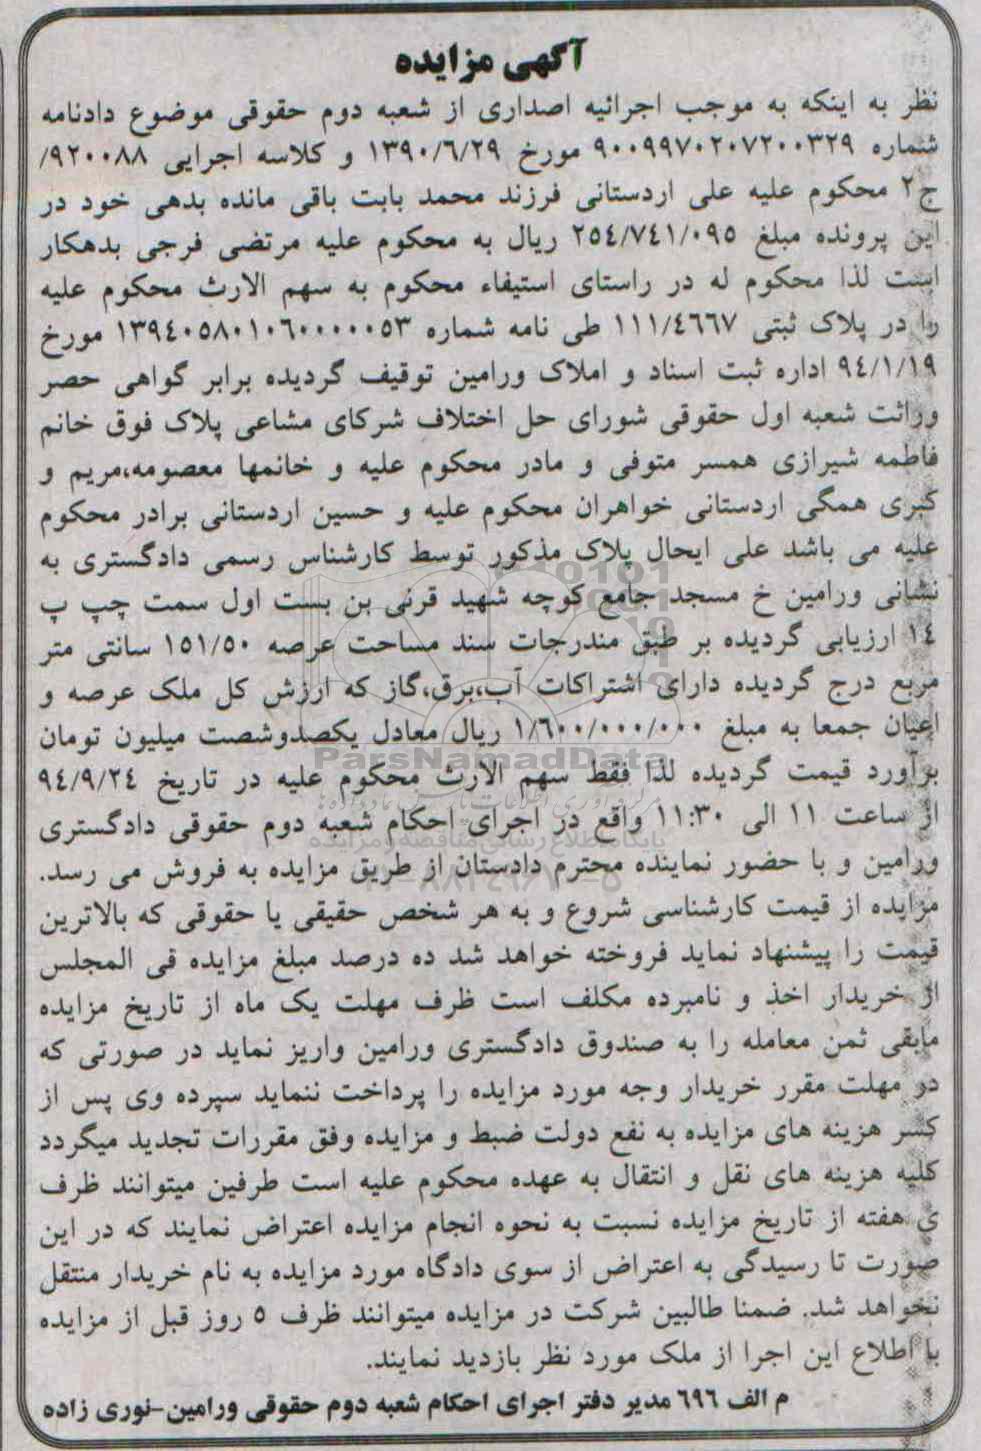 آگهی مزایده
نظر به اینکه به موجب اجرائیه اصداری از شعبه دوم حقوقی موضوع دادنامه
شماره ۹۰۰۹۹۷۰۲۰۷۲۰۰۳۲۹ مورخ ۱۳۹۰/۶/۲۹ و کلاسه اجرایی ۹۲۰۰۸۸/
ج۲ محکوم علیه علی اردستانی فرزند محمد بابت باقی مانده بدهی خود در
این پرونده مبلغ ۲۵۴/۷۴۱/۰۹۵ ریال به محکوم علیه مرتضی فرجی بدهکار
است لذا محکوم له در راستای استیفاء محکوم به سهم الارث محکوم علیه
را در پلاک ثبتی ۱۱۱/۴۶۶۷ طی نامه شماره ۱۳۹۴۰۵۸۰۱۰۶۰۰۰۰۰۵۳ مورخ
۹٤/۱/۱۹ اداره ثبت اسناد و املاک ورامین توقیف گردیده برابر گواهی حصر
وراثت شعبه اول حقوقی شورای حل اختلاف شرکای مشاعی پلاک فوق خانم
فاطمه شیرازی همسر متوفی و مادر محکوم علیه و خانمها معصومه،مریم و
کبری همگی اردستانی خواهران محکوم علیه و حسین اردستانی برادر محکوم
علیه می باشد علی ایحال پلاک مذکور توسط کارشناس رسمی دادگستری به
نشانی ورامین خ مسجد جامع کوچه شهید قرنی بن بست اول سمت چپ پ
۱٤ ارزیابی گردیده بر طبق مندرجات سند مساحت عرصه ۱۵۱/۵۰ سانتی متر
مربع درج گردیده دارای اشتراکات آب،برق،گاز که ارزش کل ملک عرصه و
اعیان جمعا به مبلغ ۱/۶۰۰/۰۰۰/۰۰۰ ریال معادل یکصدوشصت میلیون تومان
برآورد قیمت گردیده لذا فقط سهم الارث محکوم علیه در تاریخ ۹٤/۹/۲٤
از ساعت ۱۱ الی ۱۱:۳۰ واقع در اجرای احکام شعبه دوم حقوقی دادگستری
ورامین و با حضور نماینده محترم دادستان از طریق مزایده به فروش می رسد.
مزایده از قیمت کارشناسی شروع و به هر شخص حقیقی یا حقوقی که بالاترین
قیمت را پیشنهاد نماید فروخته خواهد شد ده درصد مبلغ مزایده فی المجلس
از خریدار اخذ و نامبرده مکلف است ظرف مهلت یک ماه از تاریخ مزایده
مابقی ثمن معامله را به صندوق دادگستری ورامین واریز نماید در صورتی که
در مهلت مقرر خریدار وجه مورد مزایده را پرداخت ننماید سپرده وی پس از
کسر هزینه های مزایده به نفع دولت ضبط و مزایده وفق مقررات تجدید میگردد
کلیه هزینه های نقل و انتقال به عهده محکوم علیه است طرفین میتوانند ظرف
ی هفته از تاریخ مزایده نسبت به نحوه انجام مزایده اعتراض نمایند که در این
صورت تا رسیدگی به اعتراض از سوی دادگاه مورد مزایده به نام خریدار منتقل
نخواهد شد. ضمنا طالبین شرکت در مزایده میتوانند ظرف ۵ روز قبل از مزایده
با اطلاع این اجرا از ملک مورد نظر بازدید نمایند.
م الف ٦۹٦ مدیر دفتر اجرای احکام شعبه دوم حقوقی ورامین-نوری زاده
ParsNamadData
پایگاه اطلاع رسانی مناقصه و مزایده